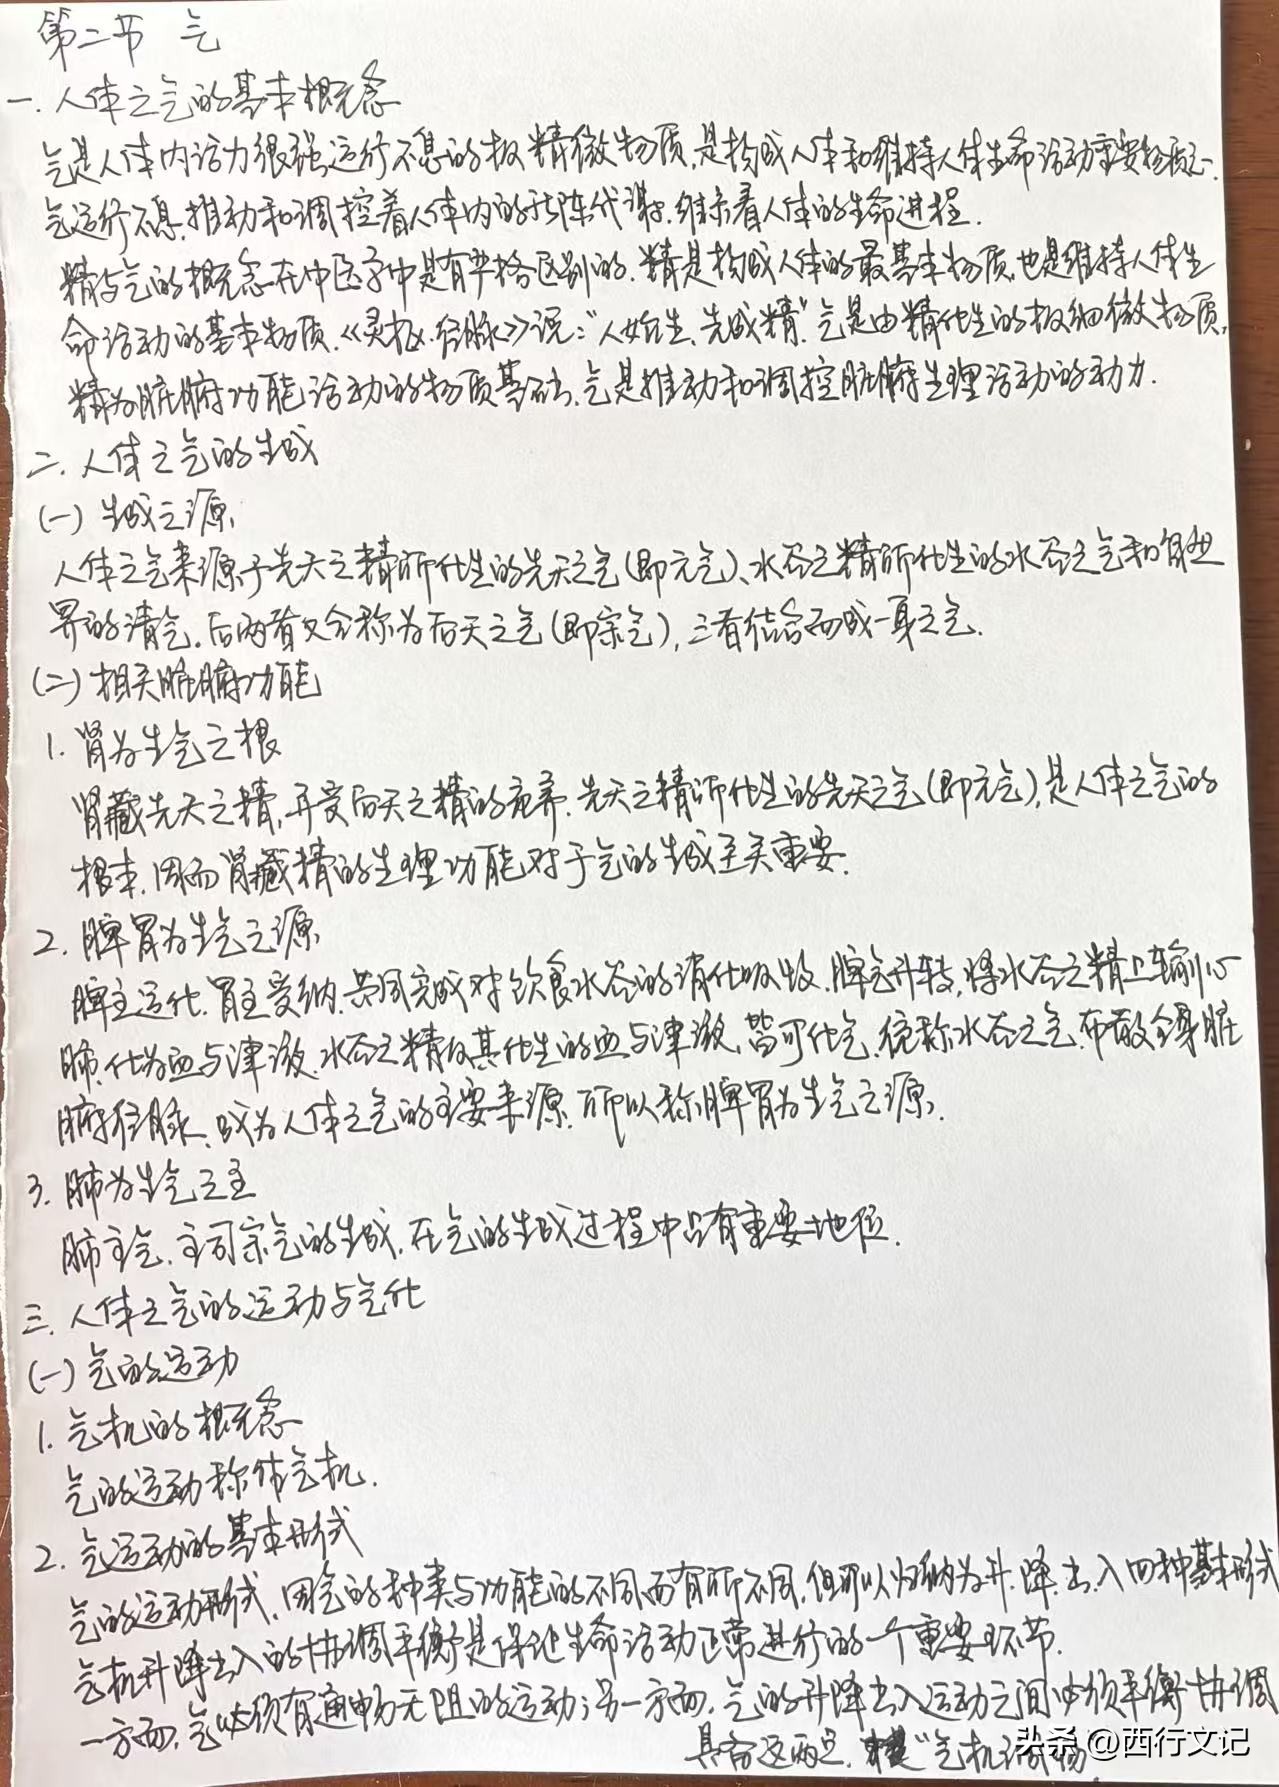 第二节 气
一.人体之气的基本概念
气是人体内活力很强运行不息的极精微物质,是构成人体和维持人体生命活动重要物质之一.
气运行不息,推动和调控着人体内的新陈代谢,维系着人体的生命进程.
精与气的概念在中医学中是有严格区别的.精是构成人体的最基本物质,也是维持人体生
命活动的基本物质.《灵枢·经脉》说:"人始生,先成精".气是由精化生的极细微物质,
精为脏腑功能活动的物质基础,气是推动和调控脏腑生理活动的动力.
二.人体之气的生成
(一)生成之源
人体之气来源于先天之精所化生的先天之气(即元气)、水谷之精所化生的水谷之气和自然
界的清气,后两者又合称为后天之气(即宗气),三者结合而成一身之气.
(二)相关脏腑功能
1.肾为生气之根
肾藏先天之精,并受后天之精的充养.先天之精所化生的先天之气(即元气),是人体之气的
根本,因而肾藏精的生理功能对于气的生成至关重要.
2.脾胃为生气之源
脾主运化,胃主受纳,共同完成对饮食水谷的消化吸收.脾气升转,将水谷之精上输心
肺,化为血与津液.水谷之精及其化生的血与津液,皆可化气,统称水谷之气,布散全身脏
腑经脉,成为人体之气的主要来源,所以称脾胃为生气之源.
3.肺为生气之主
肺主气,主司宗气的生成,在气的生成过程中占有重要地位.
三.人体之气的运动与气化
(一)气的运动
1.气机的概念
气的运动称作气机.
2.气运动的基本形式
气的运动形式,因气的种类与功能的不同而有所不同,但可以归纳为升、降、出、入四种基本形式
气机升降出入的协调平衡是保证生命活动正常进行的一个重要环节.
一方面,气必须有通畅无阻的运动;另一方面,气的升降出入运动之间必须平衡协调
具备这两点,"气机调畅
头条@西行文记